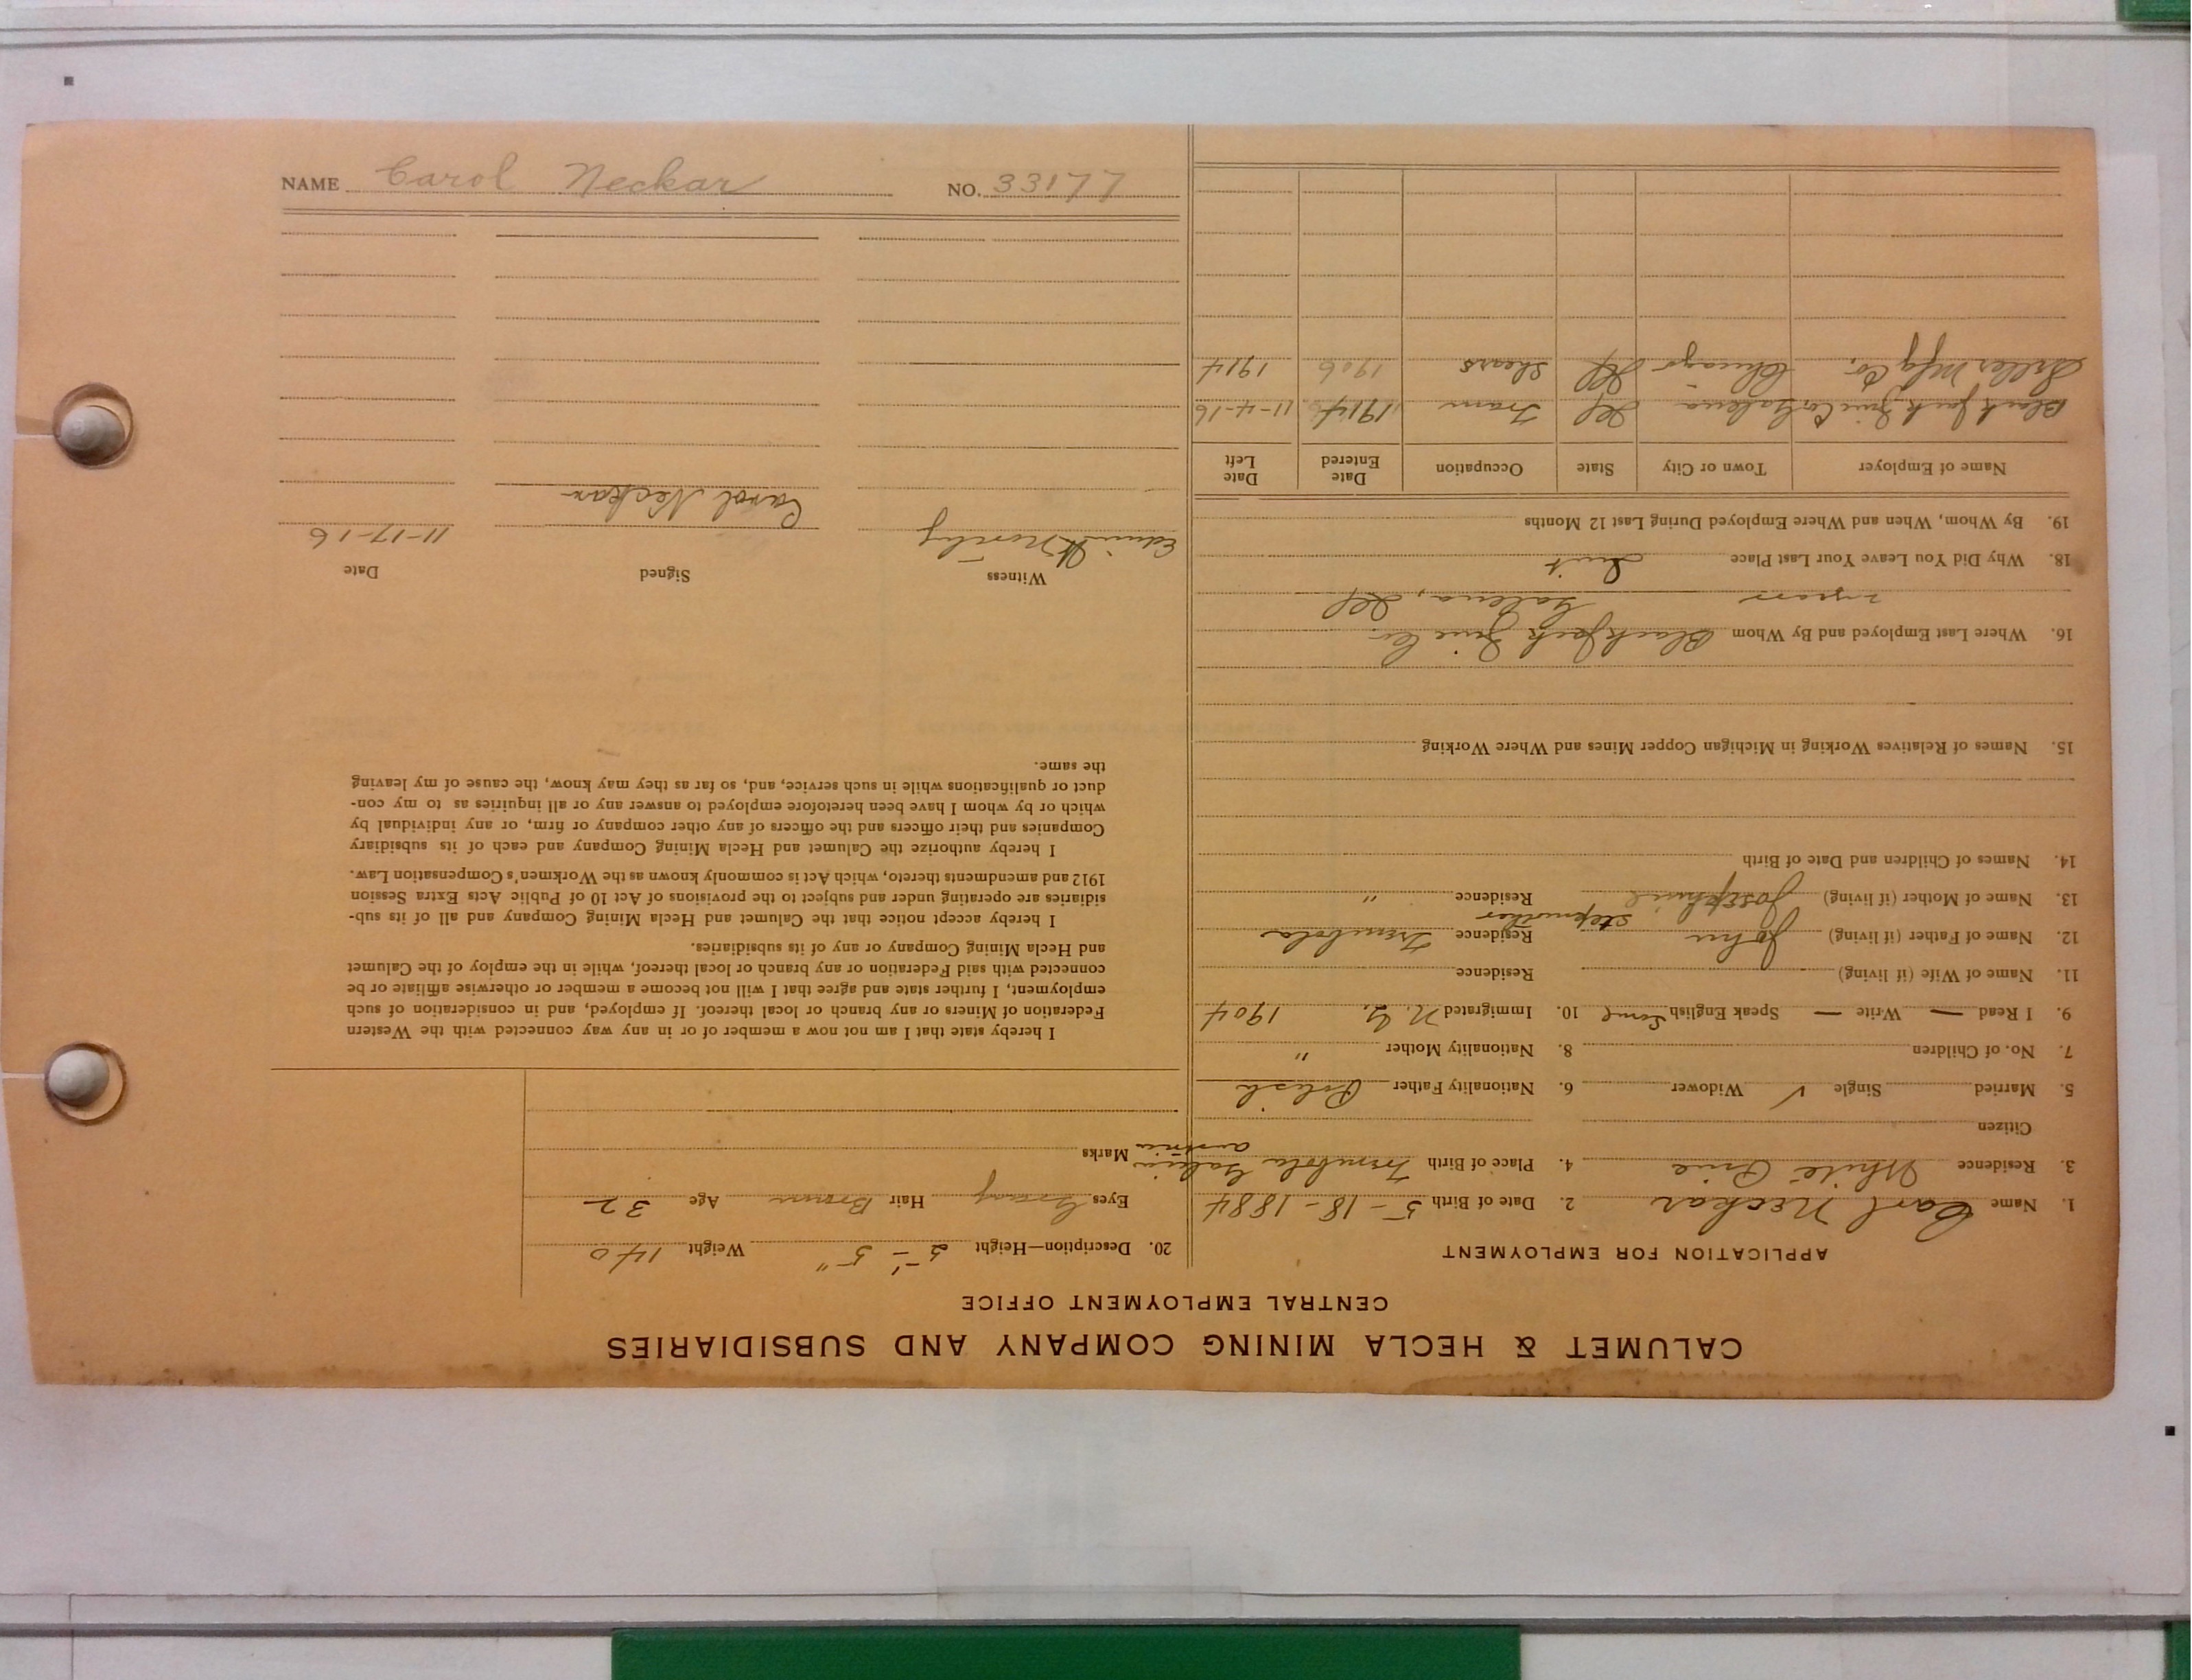 CALUMET & HECLA MINING COMPANY AND SUBSIDIARIES
CENTRAL EMPLOYMENT OFFICE
APPLICATION FOR EMPLOYMENT
1. Name Carl Neckar 2. Date of Birth 5-18-1884
3. Residence White Pine 4. Place of Birth Galicia
Austria
Citizen
5. Married Single ✓ Widower 6. Nationality Father Polish
7. No. of Children 8. Nationality Mother "
9. I Read — Write — Speak English Some 10. Immigrated N.Y. 1904
11. Name of Wife (if living) Residence
12. Name of Father (if living) John Residence
stepmother
13. Name of Mother (if living) Josephine Residence "
14. Names of Children and Date of Birth
15. Names of Relatives Working in Michigan Copper Mines and Where Working
16. Where Last Employed and By Whom Black Jack Zinc Co.
Galena, Ill
18. Why Did You Leave Your Last Place Quit
19. By Whom, When and Where Employed During Last 12 Months
Name of Employer Town or City State Occupation Date Entered Date Left
Black Jack Zinc Co. Galena Ill Tram 1914 11-4-16
Mfg Co. Chicago Ill Shears 1906 1914
20. Description—Height 5'-5" Weight 140
Eyes Gray Hair Brown Age 32
Marks
I hereby state that I am not now a member of or in any way connected with the Western
Federation of Miners or any branch or local thereof. If employed, and in consideration of such
employment, I further state and agree that I will not become a member or otherwise affiliate or be
connected with said Federation or any branch or local thereof, while in the employ of the Calumet
and Hecla Mining Company or any of its subsidiaries.
I hereby accept notice that the Calumet and Hecla Mining Company and all of its sub-
sidiaries are operating under and subject to the provisions of Act 10 of Public Acts Extra Session
1912 and amendments thereto, which Act is commonly known as the Workmen's Compensation Law.
I hereby authorize the Calumet and Hecla Mining Company and each of its subsidiary
Companies and their officers and the officers of any other company or firm, or any individual by
which or by whom I have been heretofore employed to answer any or all inquiries as to my con-
duct or qualifications while in such service, and, so far as they may know, the cause of my leaving
the same.
Witness Signed Date
Edwin Carol Neckar 11-17-16
NAME Carol Neckar NO. 33177